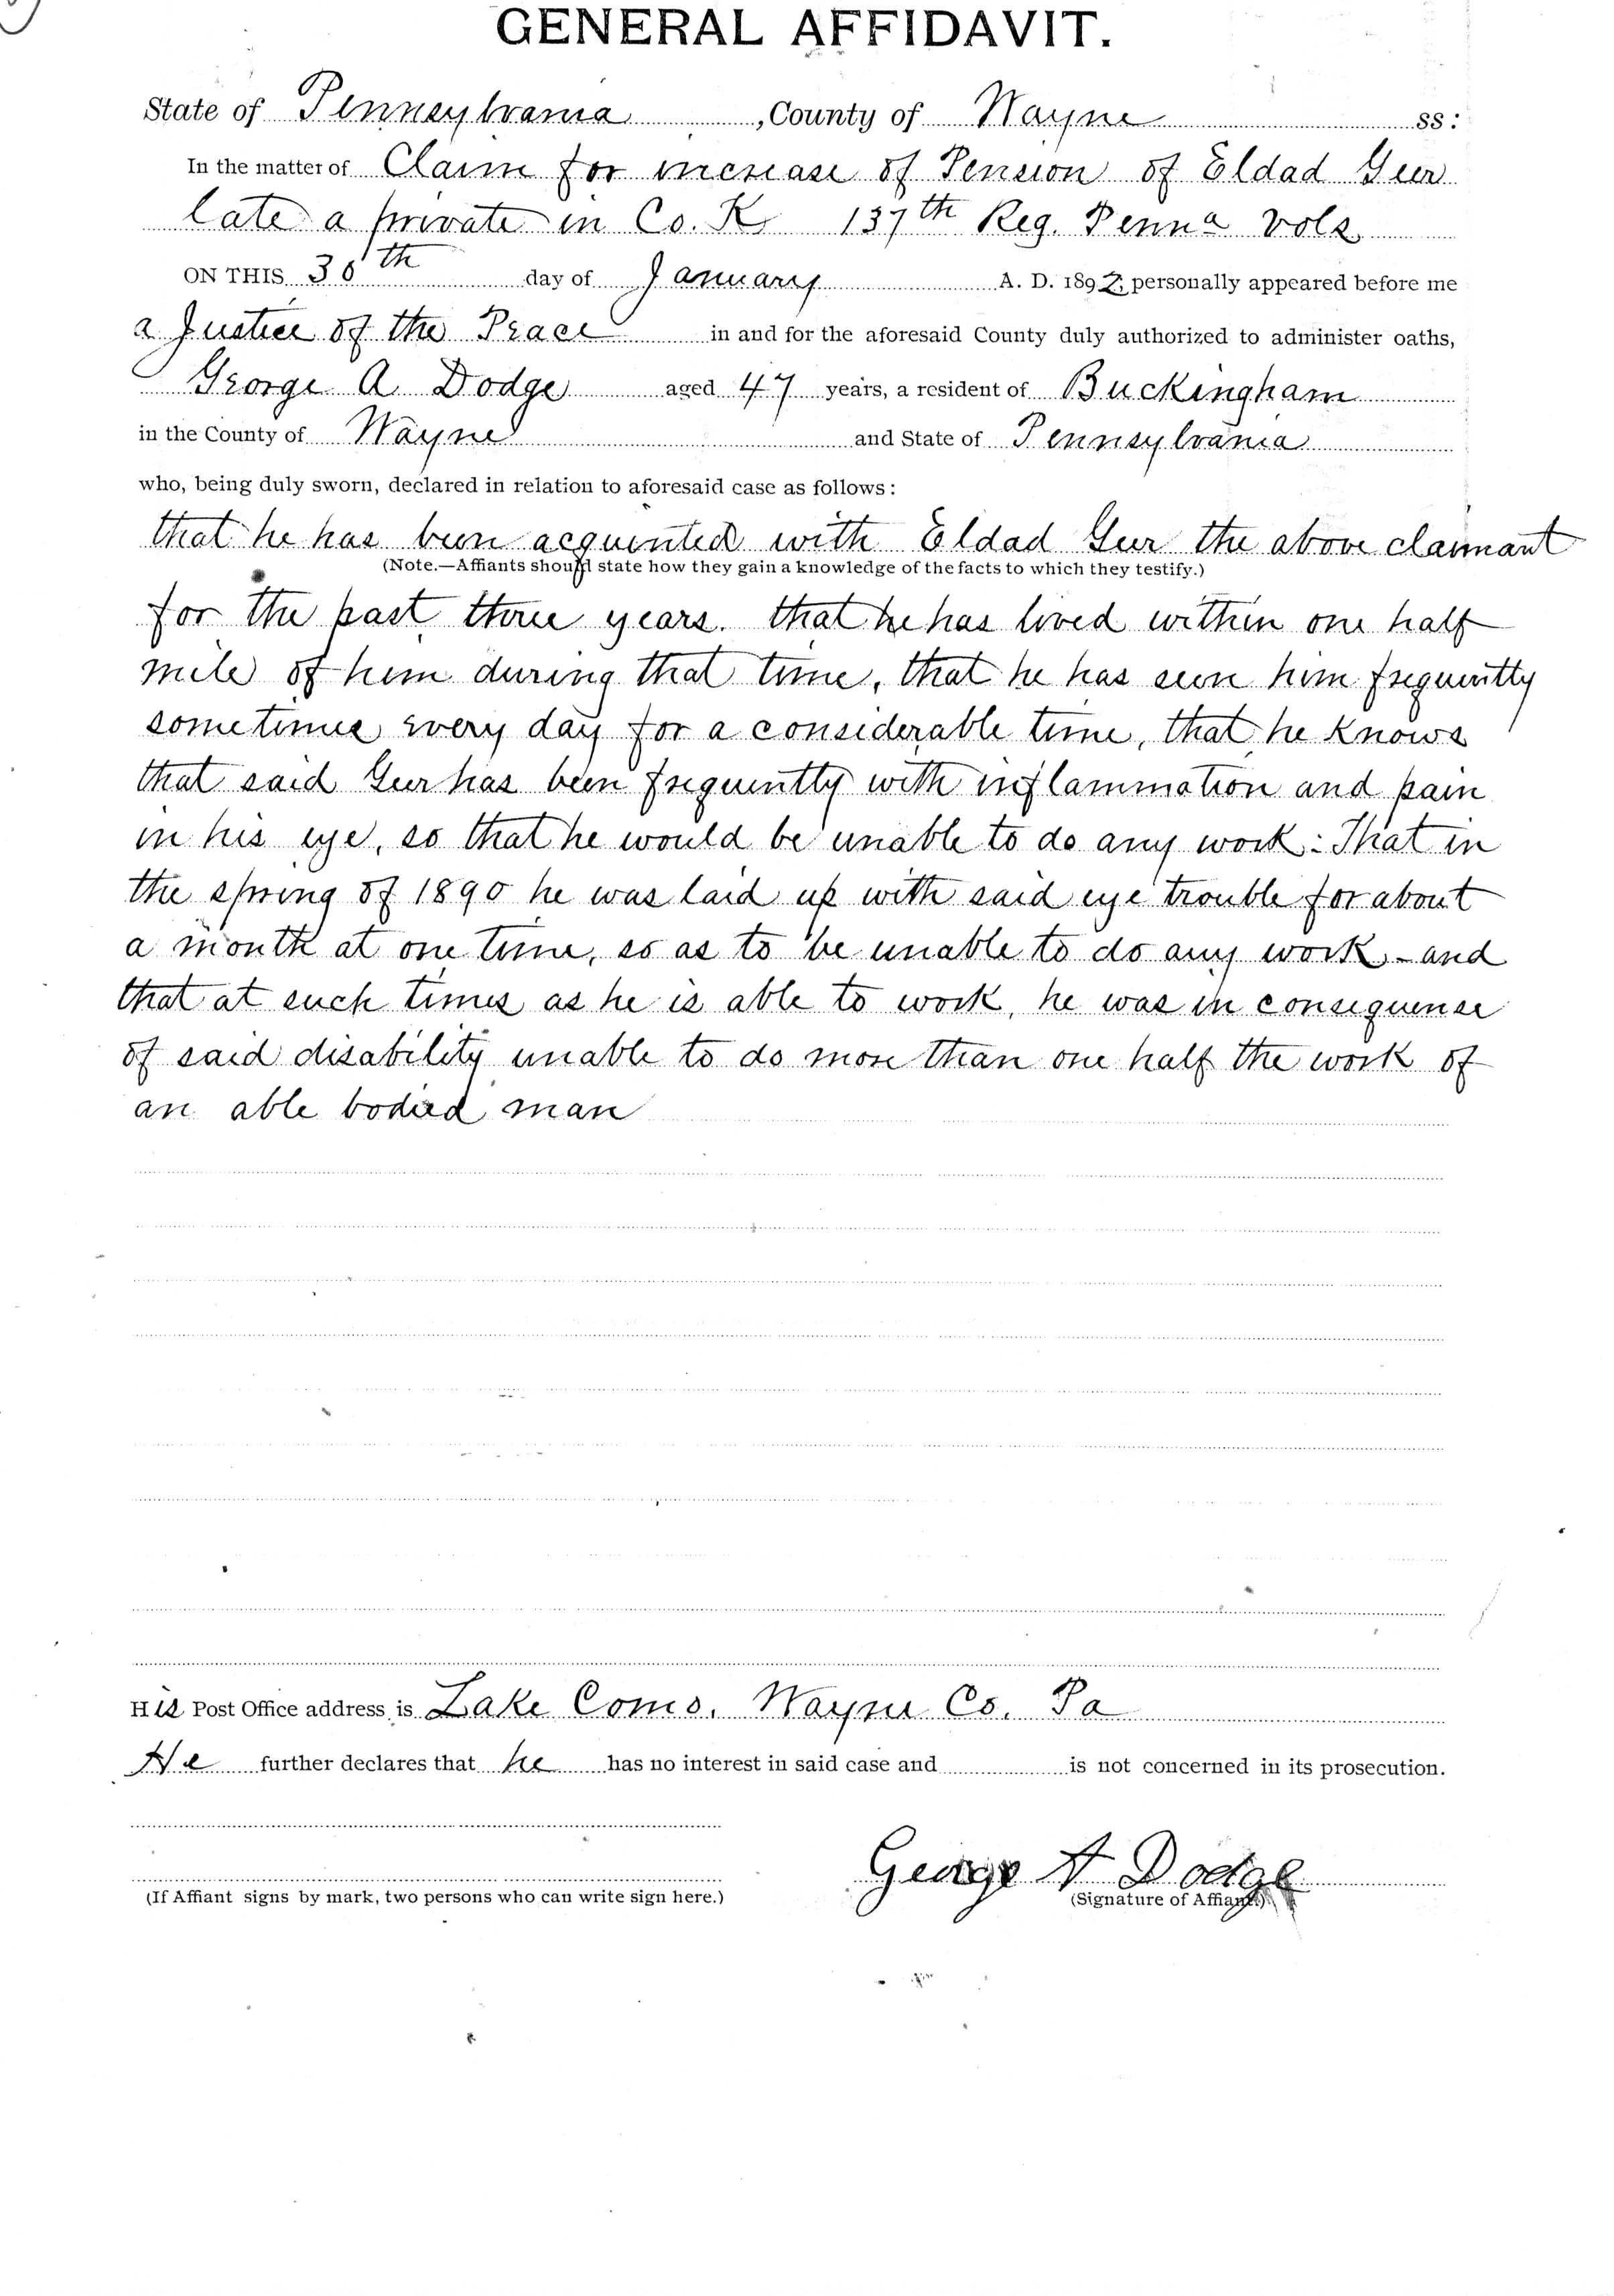 GENERAL AFFIDAVIT.
State of Pennsylvania, County of Wayne SS:
In the matter of Claim for increase of Pension of Eldad Geer
late a private in Co. K 137th Reg. Penna Vols
ON THIS 30th day of January A. D. 1892, personally appeared before me
a Justice of the Peace in and for the aforesaid County duly authorized to administer oaths,
George A. Dodge aged 47 years, a resident of Buckingham
in the County of Wayne and State of Pennsylvania
who, being duly sworn, declared in relation to aforesaid case as follows:
that he has been acquented with Eldad Geer the above claimant
(Note.—Affiants should state how they gain a knowledge of the facts to which they testify.)
for the past three years. that he has lived within one half
mile of him during that time, that he has seen him frequently
sometimes every day for a considerable time, that he knows
that said Geer has been frequently with inflammation and pain
in his eye, so that he would be unable to do any work: That in
the spring of 1890 he was laid up with said eye trouble for about
a month at one time, so as to be unable to do any work - and
that at such times as he is able to work, he was in consequense
of said disability unable to do more than one half the work of
an able bodied man
His Post Office address is Lake Como, Wayne Co. Pa
He further declares that he has no interest in said case and is not concerned in its prosecution.
George A Dodge
(If Affiant signs by mark, two persons who can write sign here.) (Signature of Affiant.)